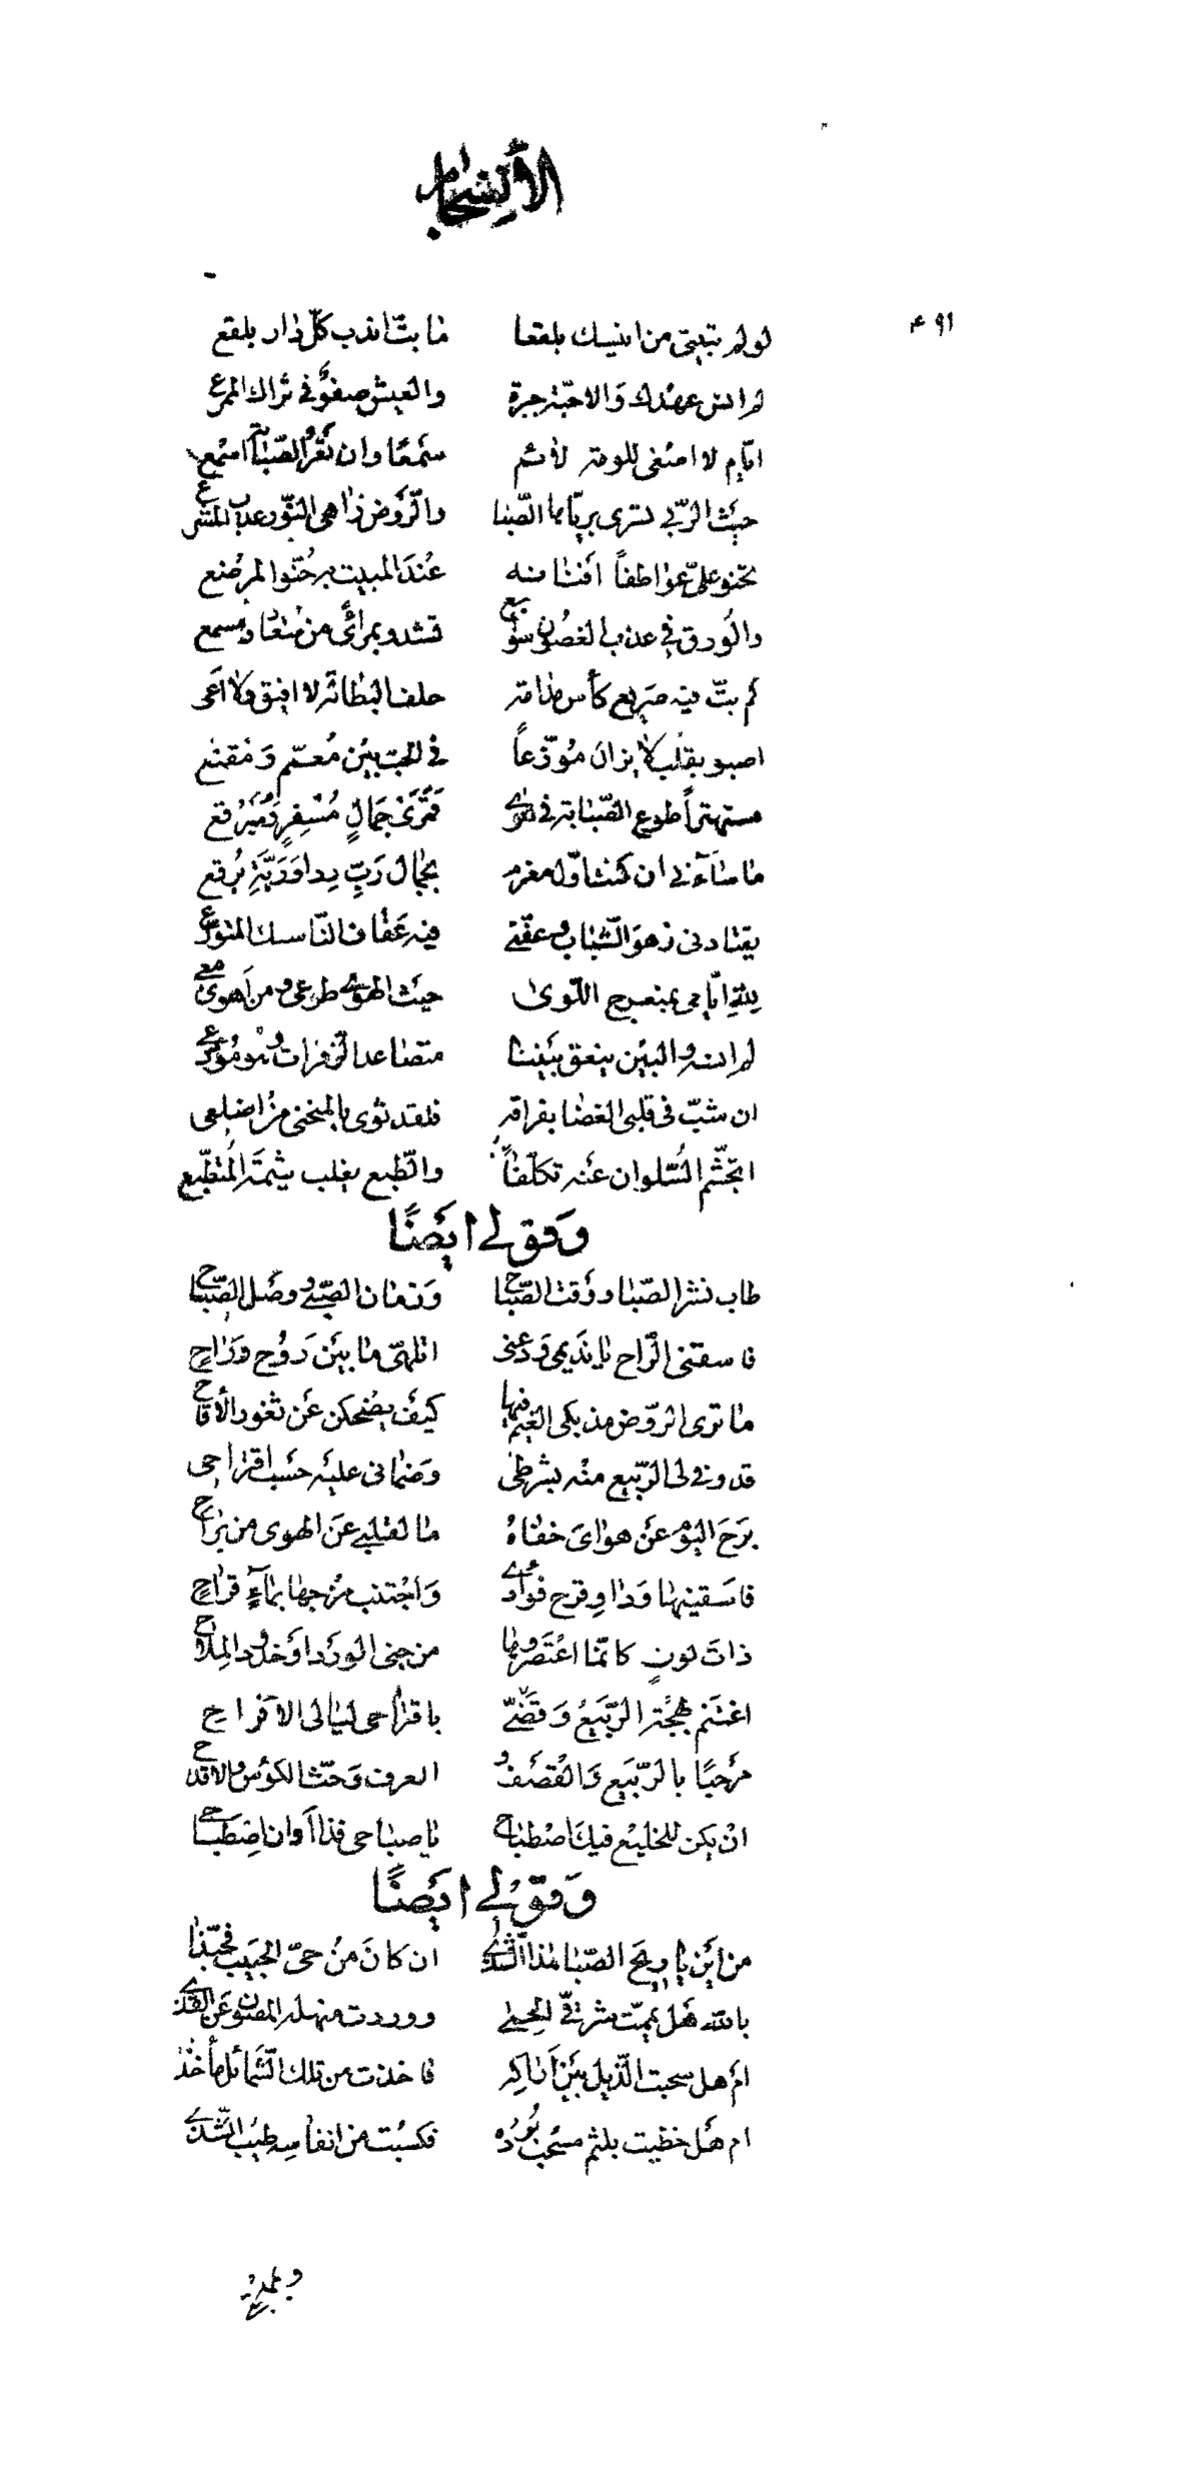 الأنسجام
٤٩١
لو لم تبيتي من انيسك بلقعا ما بتّ اندب كلّ دار بلقع
لم انس عهدك والاحبّة جيرة والعيش صفوٌ في ثراك الممرع
ايّام لا اصغى للومة لائم سَمعًا وان نَفَر الصّبابة امنع
حيث الرّبى تسرى بريّاها الصّبا والرّوض زاهى النّور عذب المشرع
تحنو علىّ عواطفاً افنانه عند المبيت به حُنّوا لمرضع
والورق في عذب الغصون سواجع تشدو بمرأى من سعاد ومسمع
كم بتّ فيه صريع كأس مدامة حلف البطالة لا افيق ولا أعى
اصبو بقلب لا يزال مُوَزّعاً في الحبّ بين مُعمّم وَمُقنّع
مستهتراً طوع الصّبابة في هوى قَمَرَىْ جَمَالٍ مُسْفِرٍ وَمُبَرْقع
ما ساءني ان كنت اوّل مغرم بجمال رَبِّ رِدا وَرَبَّةِ بُرقع
يقتادنى زهو الشّباب وعفّتى فيه عَفاف النّاسك المتورّع
لِلّهِ ايّامى بمنعرج اللّوىٰ حيث الهوى طوعى ومن أهوى معى
لم انسه والبين ينعق بيننا متصاعد الزّفرات وهو مُودّعى
ان شبّ في قلبى الغضا بفراقه فلقد ثوى بالمنحنى من اضلعى
اتجشّم السّلوان عنه تكلّفاً والطّبع يغلب شيمة المُتطبّع
وَقَولى ايضًا
طاب نشر الصّبا ووقت الصّباح وَزمان الصّبى ووصل الصّباح
فاسقنى الرّاح يا نديمى وَدعنى اتلهّى ما بين رَوُح وَرَاحٍ
ما ترى الرّوض مذ بكى الغيم فيها كيف يضحكن عن ثغور الأقاح
قد وفى لى الرّبيع منه بشرطى وَضمانى عليه حَسب اقتراحى
برَحَ اليوم عن هواىَ خفاهُ ما لقلبى عن الهوى من براح
فاسقينها وَداوِ قرح فؤادى وَاجْتنب مزجها بماءٍ قراحٍ
ذات لونٍ كانّما اعْتَصَروها من جنى الورد او خدود المِلاح
اغتنم بهجة الرّبيعُ وَقَضّى باقتراحى ليالى الافراحِ
مرحبًا بالرّبيع وَالقصف و العرف وَحثّ الكؤس والاقداح
انْ يكن للخليع فيك اصْطباح يا صباحى فذا أوان اصْطباحى
وَقَوُلى ايضًا
من اين يا ريح الصّبا هذا الشّذى ان كان مِنُ حىّ الحبيب فحبّذا
بالله هل يمّمت مشرقىّ الحمى ووردت منهله المصون عن القذى
ام هل سحبت الذّيل بين اراكه فاخذت من تلك الشّمائل مأخذا
ام هل حظيت بلثم مسحب بُوده فكسبت من انفاسه طيب الشّذى